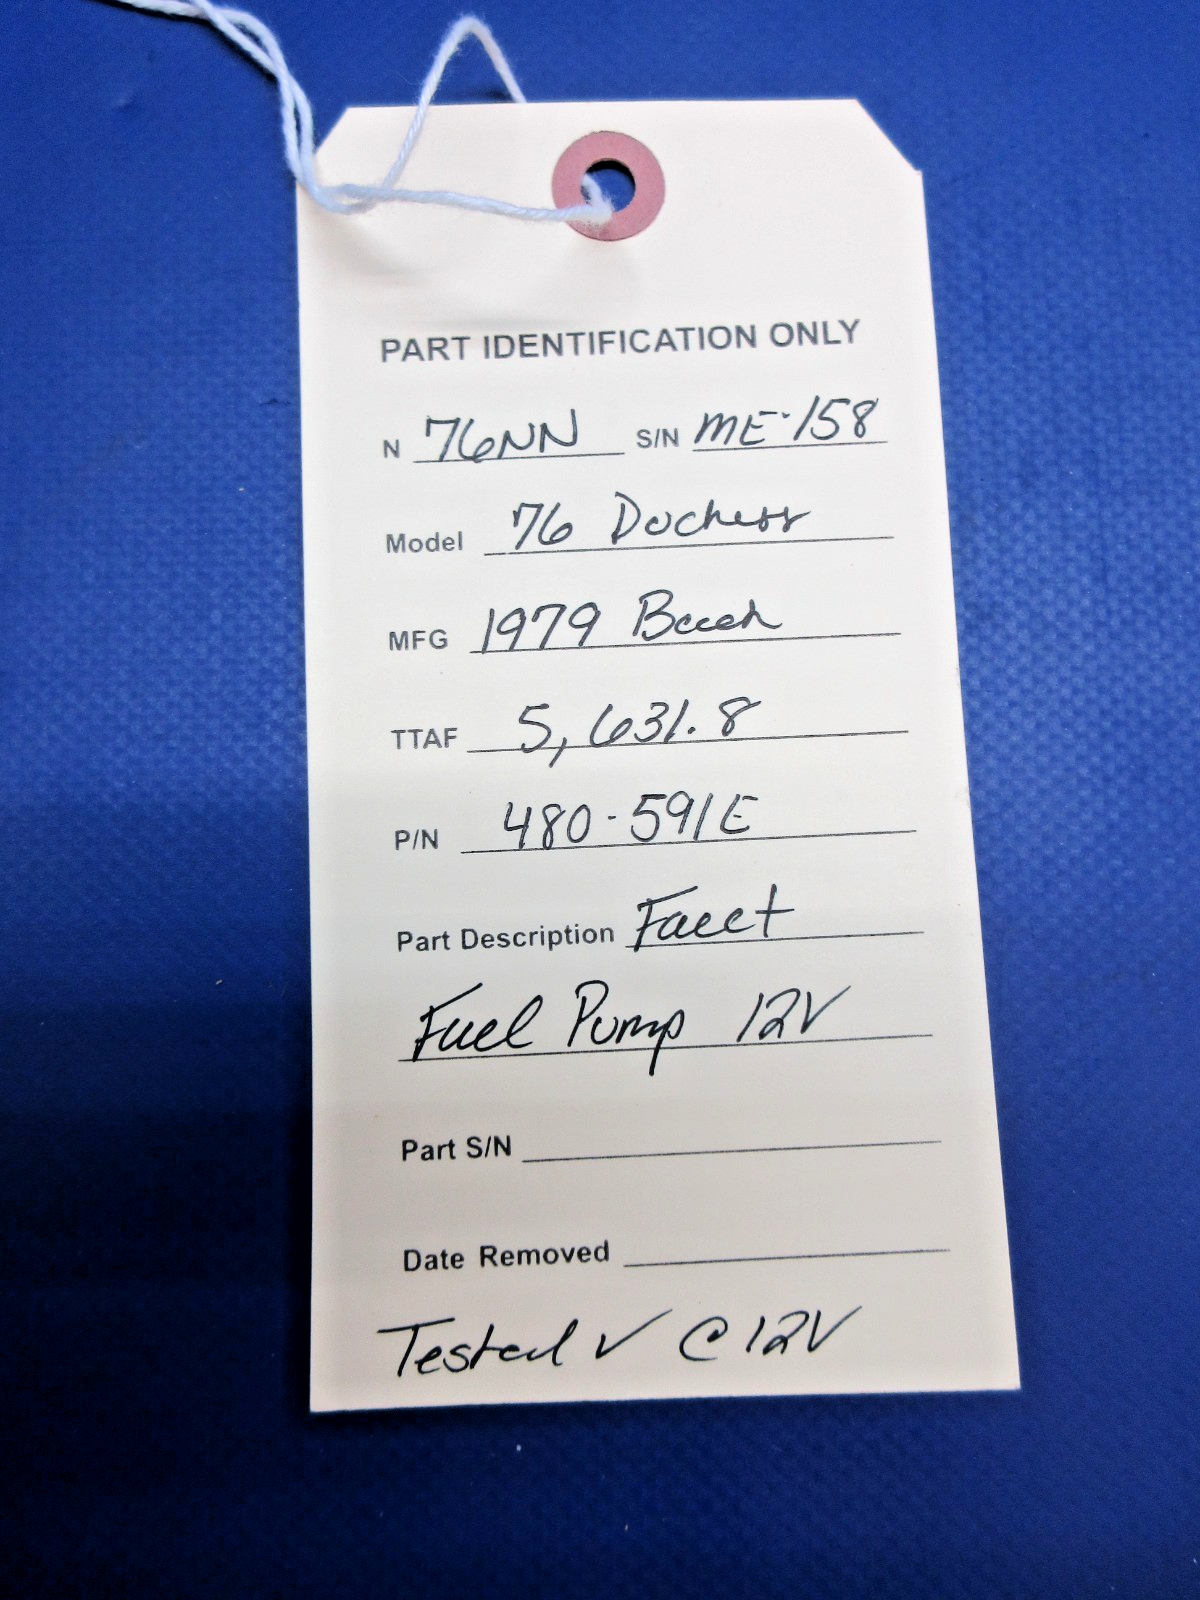 PART IDENTIFICATION ONLY
N 76NN S/N ME-158
Model 76 Duchess
MFG 1979 Beech
TTAF 5,631.8
P/N 480-591E
Part Description Facet
Fuel Pump 12V
Part S/N
Date Removed
Tested ✓ @ 12V